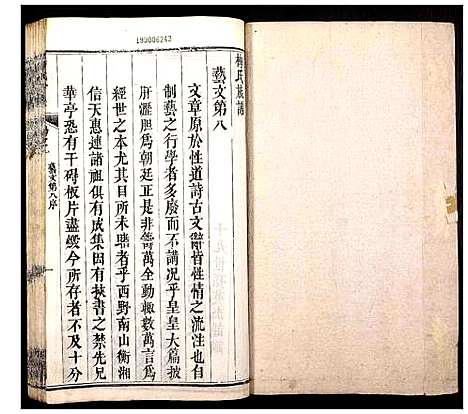 190006242
梅氏族譜
藝文第八
文章原於性道詩古文辭皆性情之流注也自
制藝之行學者多廢而不講况乎皇皇大篇披
肝瀝膽爲朝廷正是非籌萬全動輒數萬言爲
經世之本尤其目所未睹者乎西野南山衡湘
信天惠連諸祖俱有成集因有挾書之禁先兄
華亭恐有干碍板片盡燬今所存者不及十分
藝文第八序